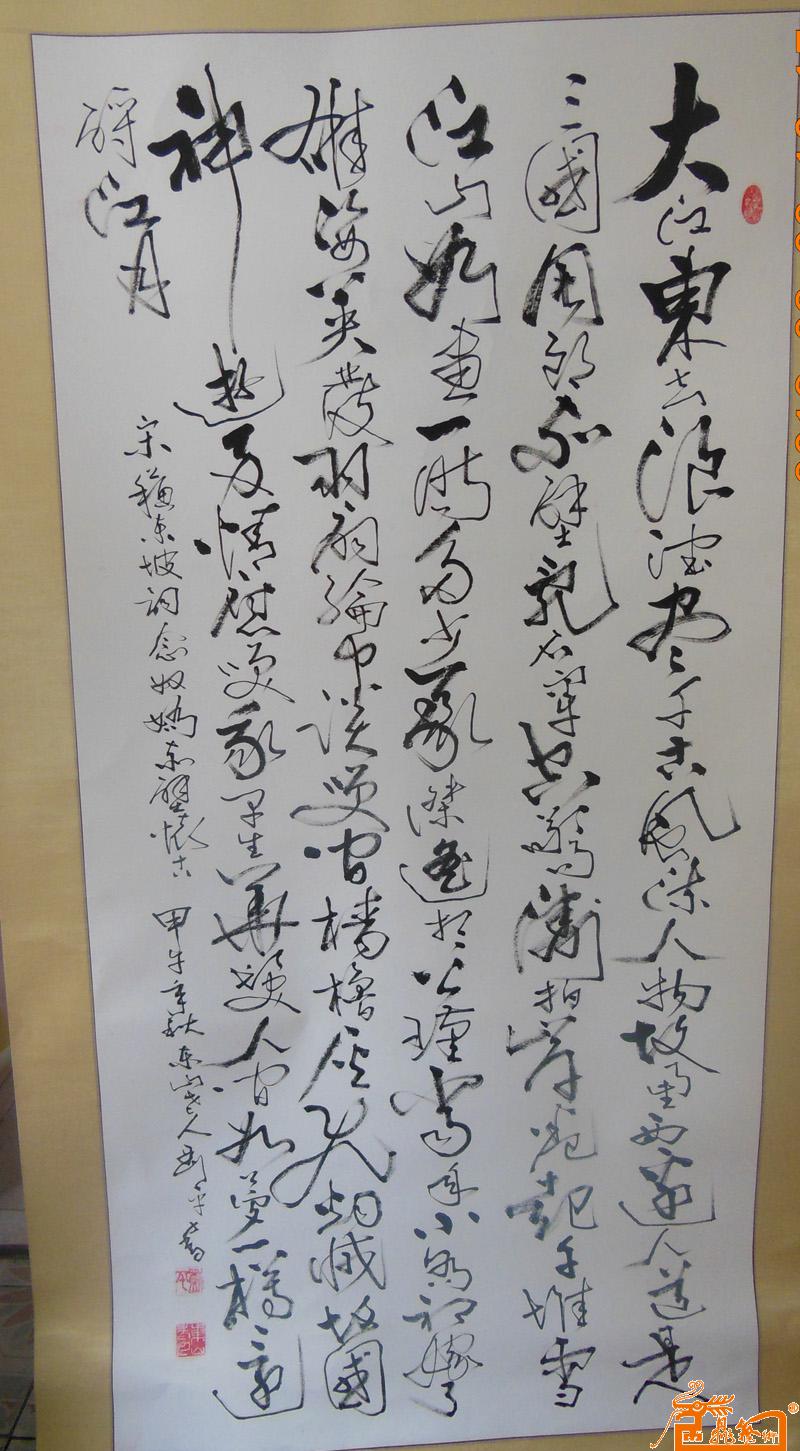 大江東去浪淘盡千古風流人物故壘西邊人道是
三國周郎赤壁亂石穿空驚濤拍岸捲起千堆雪
江山如畫一時多少豪傑遙想公瑾當年小喬初嫁了
雄姿英發羽扇綸巾談笑間檣櫓灰飛煙滅故國
神遊多情應笑我早生華髮人間如夢一樽還
酹江月
宋蘇東坡詞念奴嬌赤壁懷古 甲午年秋東山老人劉平書